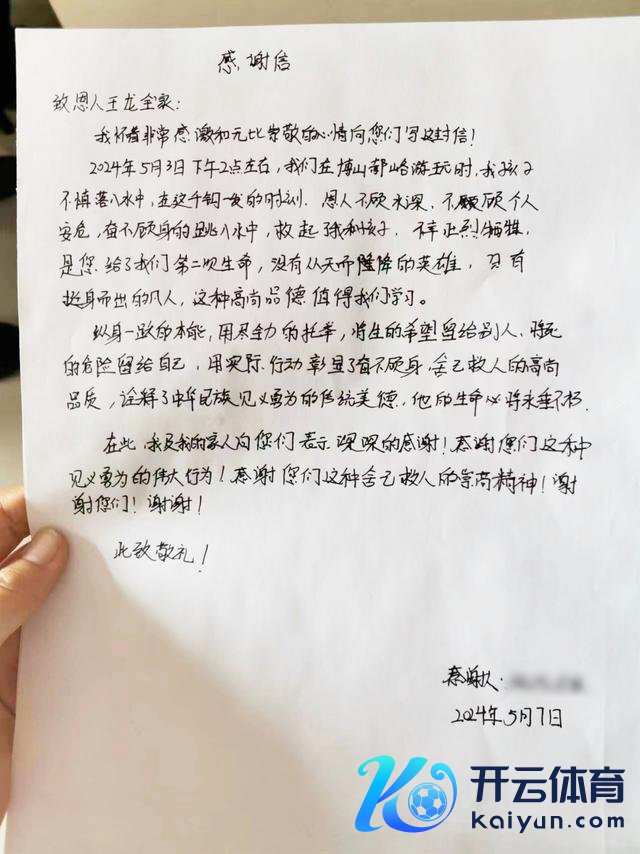 感谢信
致恩人王龙全家:
我怀着非常感激和无比崇敬的心情向您们写这封信!
2024年5月3日下午2点左右,我们在博山郡峪游玩时,我孩子
不慎落入水中,在这千钧一发的时刻.恩人不顾水深,不顾个人
安危,奋不顾身的跳入水中,救起了我和孩子.不幸壮烈牺牲.
是您给了我们第二次生命,没有从天而降的英雄,只有
挺身而出的凡人,这种高尚品德值得我们学习。
纵身一跃的本能,用尽全力的托举,将生的希望留给别人、将死
的危险留给自己,用实际行动彰显了奋不顾身、舍己救人的高尚
品质,诠释了中华民族见义勇为的传统美德,他的生命必将永垂不朽.
在此,我及我的家人向您们表示深深的感谢!感谢您们这种
见义勇为的伟大行为!感谢您们这种舍己救人的崇高精神!谢
谢您们!谢谢!
此致敬礼!
感谢人:
2024年5月7日
开云体育
kaiyun.com